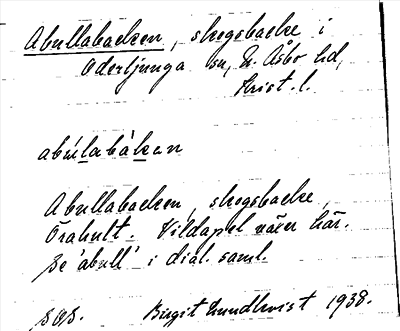 Abullabacken, skogsbacke i
Oderljunga sn, N. Åsbo hd,
Krist. l.
abúlabàkan
Abullabacken, skogsbacke,
Örahult. Vildapel växer här.
Se 'abull' i dial. saml.
Birgit Lundkvist 1938.